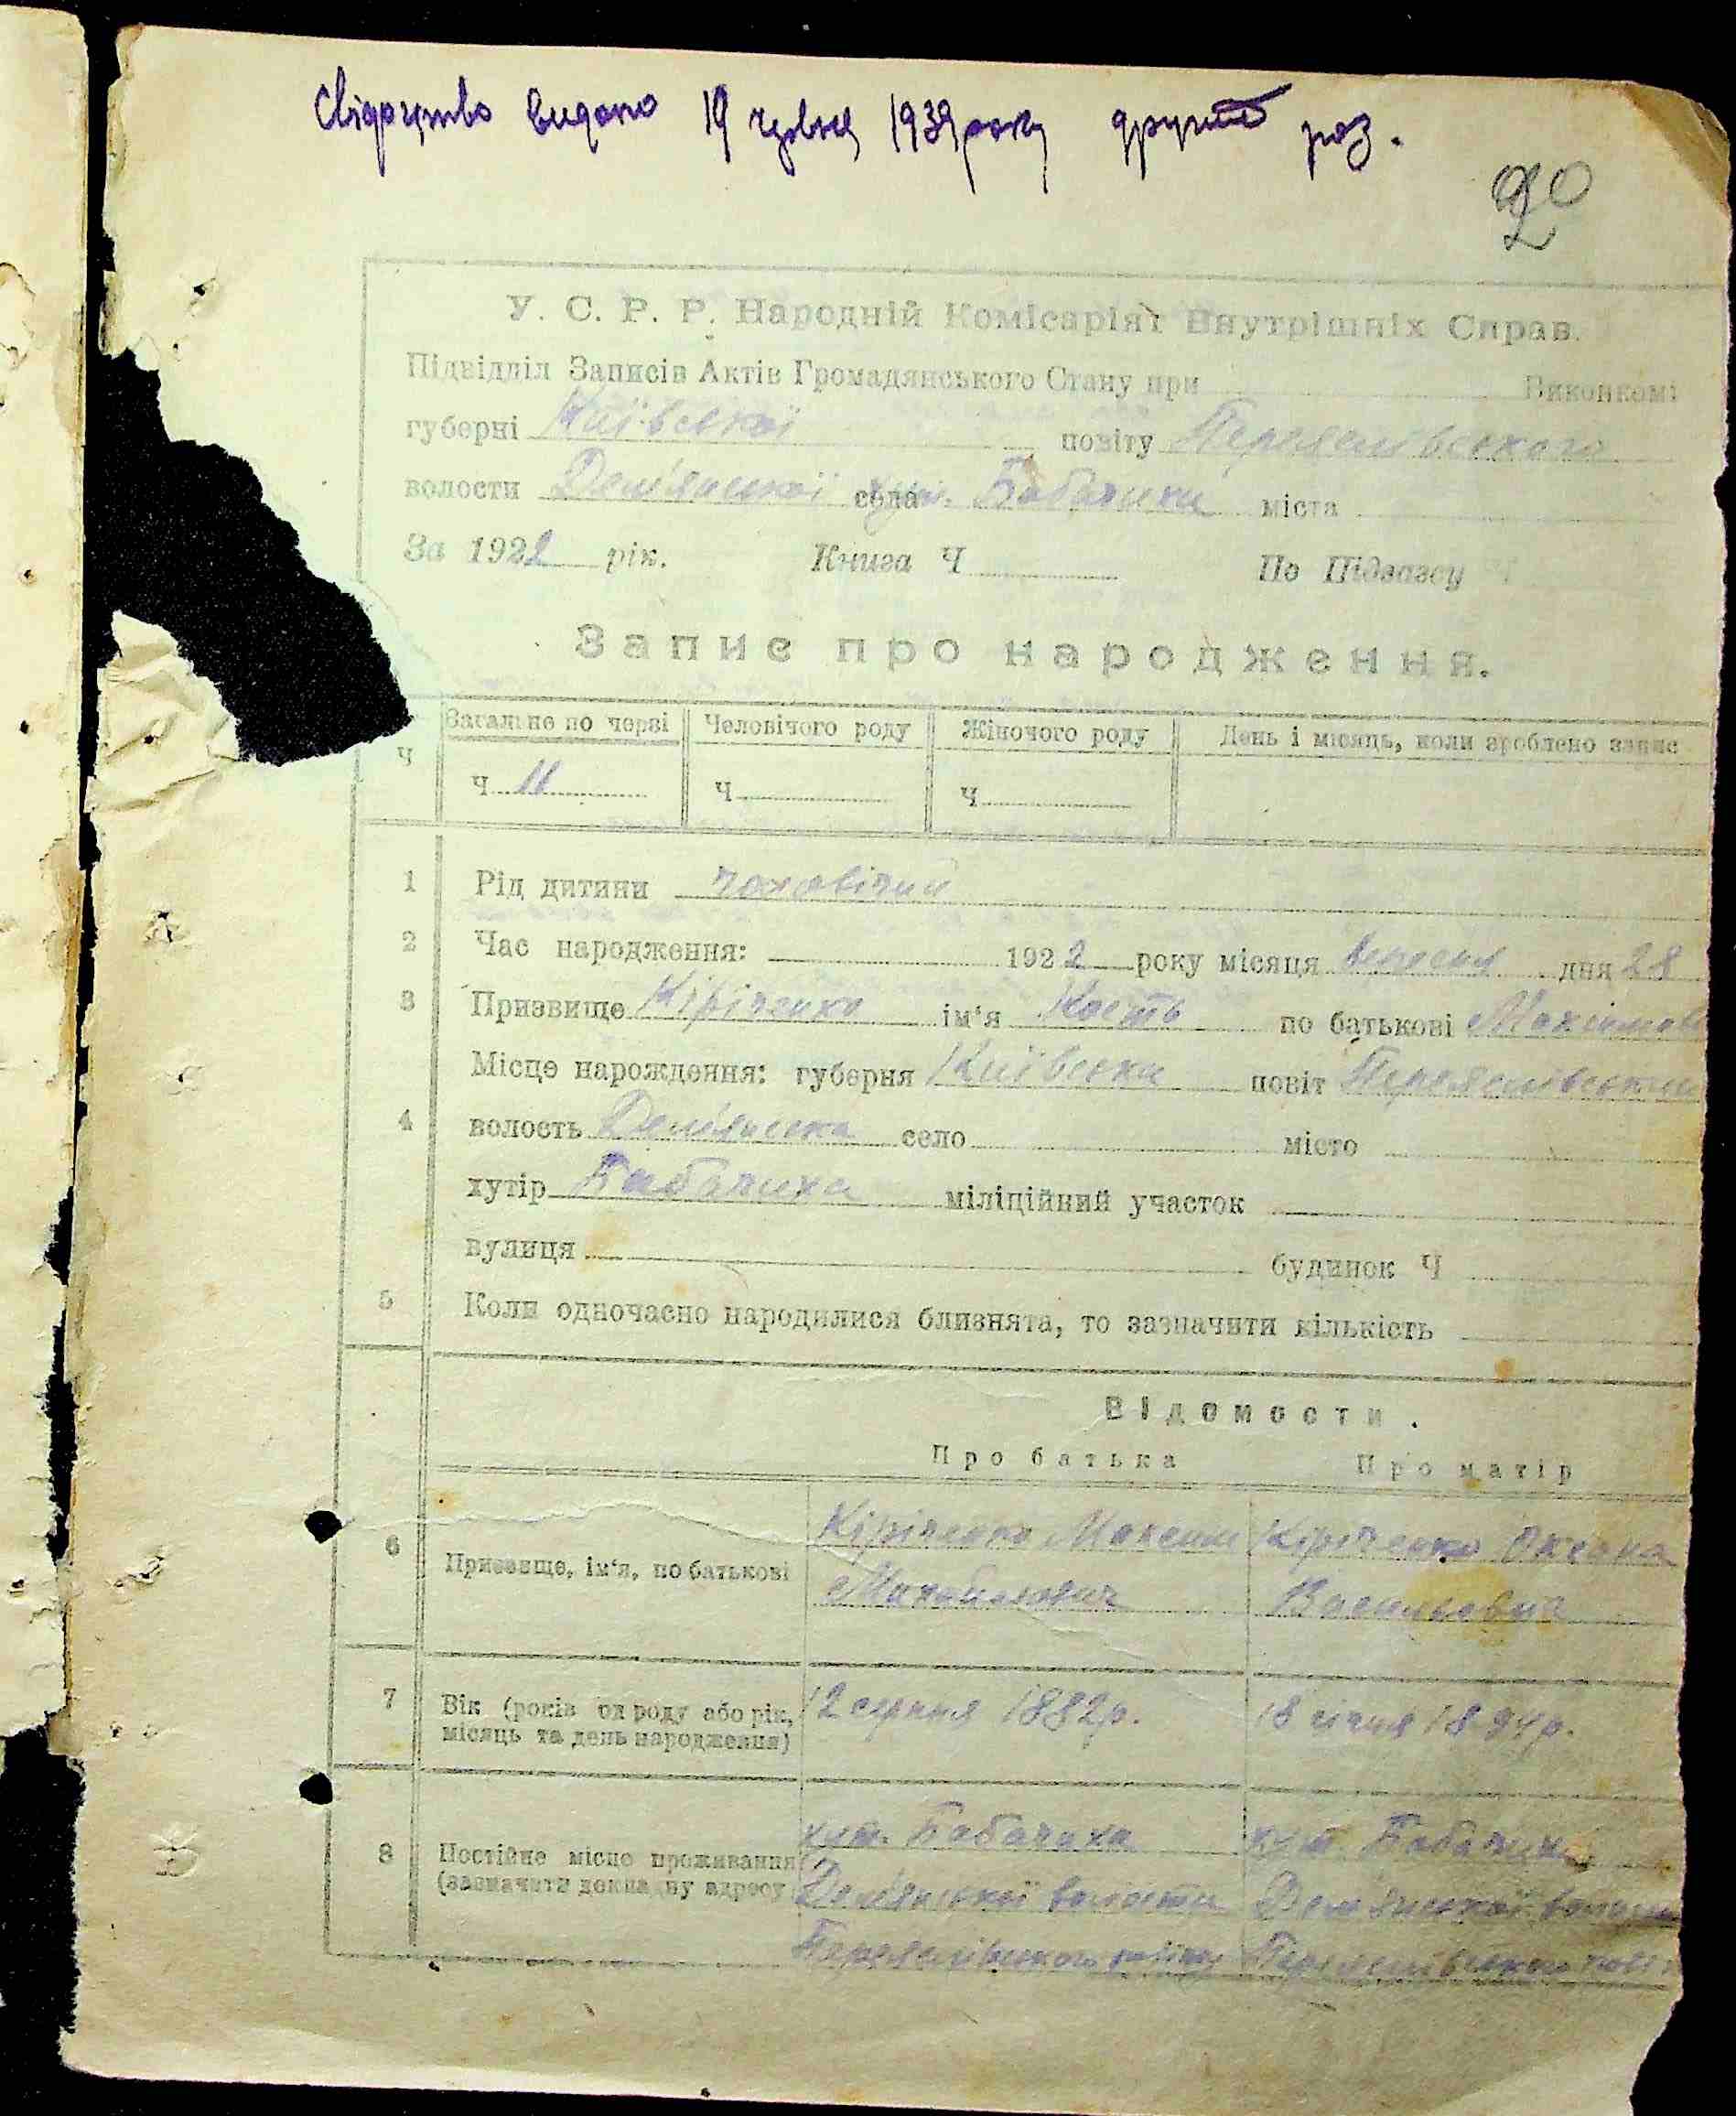 Свідоцтво видано 19 червня 1939 року другий раз.
20
У. С. Р. Р. Народній Комісаріят Внутрішніх Справ.
Підвідділ Записів Актів Громадянського Стану при Виконкомі
губерні Київської повіту Переяслівського
волости Дем'янської села хут. Бабачиха міста
За 1922 рік. Книга Ч По Підзагсу
Запис про народження.
Ч Загальне по черзі Человічого роду Жіночого роду День і місяць, коли зроблено запис
Ч 11 Ч Ч
1 Рід дитини чоловічий
2 Час народження: 1922 року місяця вересня дня 28
3 Призвище Кіріченко ім'я Кость по батькові Максимов
Місце нарождення: губерня Київська повіт Переяслівський
4 волость Дем'янська село місто
хутір Бабачиха міліційний участок
вулиця будинок Ч
5 Коли одночасно народилися близнята, то зазначити кількість
Відомости.
Про батька Про матір
6 Призвище, ім'я, по батькові Кіріченко Максим Михайлович Кіріченко Оксана Васильовна
7 Вік (років од роду або рік, місяць та день народження) 12 серпня 1882 р. 18 січня 1894 р.
8 Постійне місце проживання (зазначити докладну адресу хут. Бабачиха Дем'янської волости Переяслівського повіту хут. Бабачиха Дем'янської волости Переяслівського пові